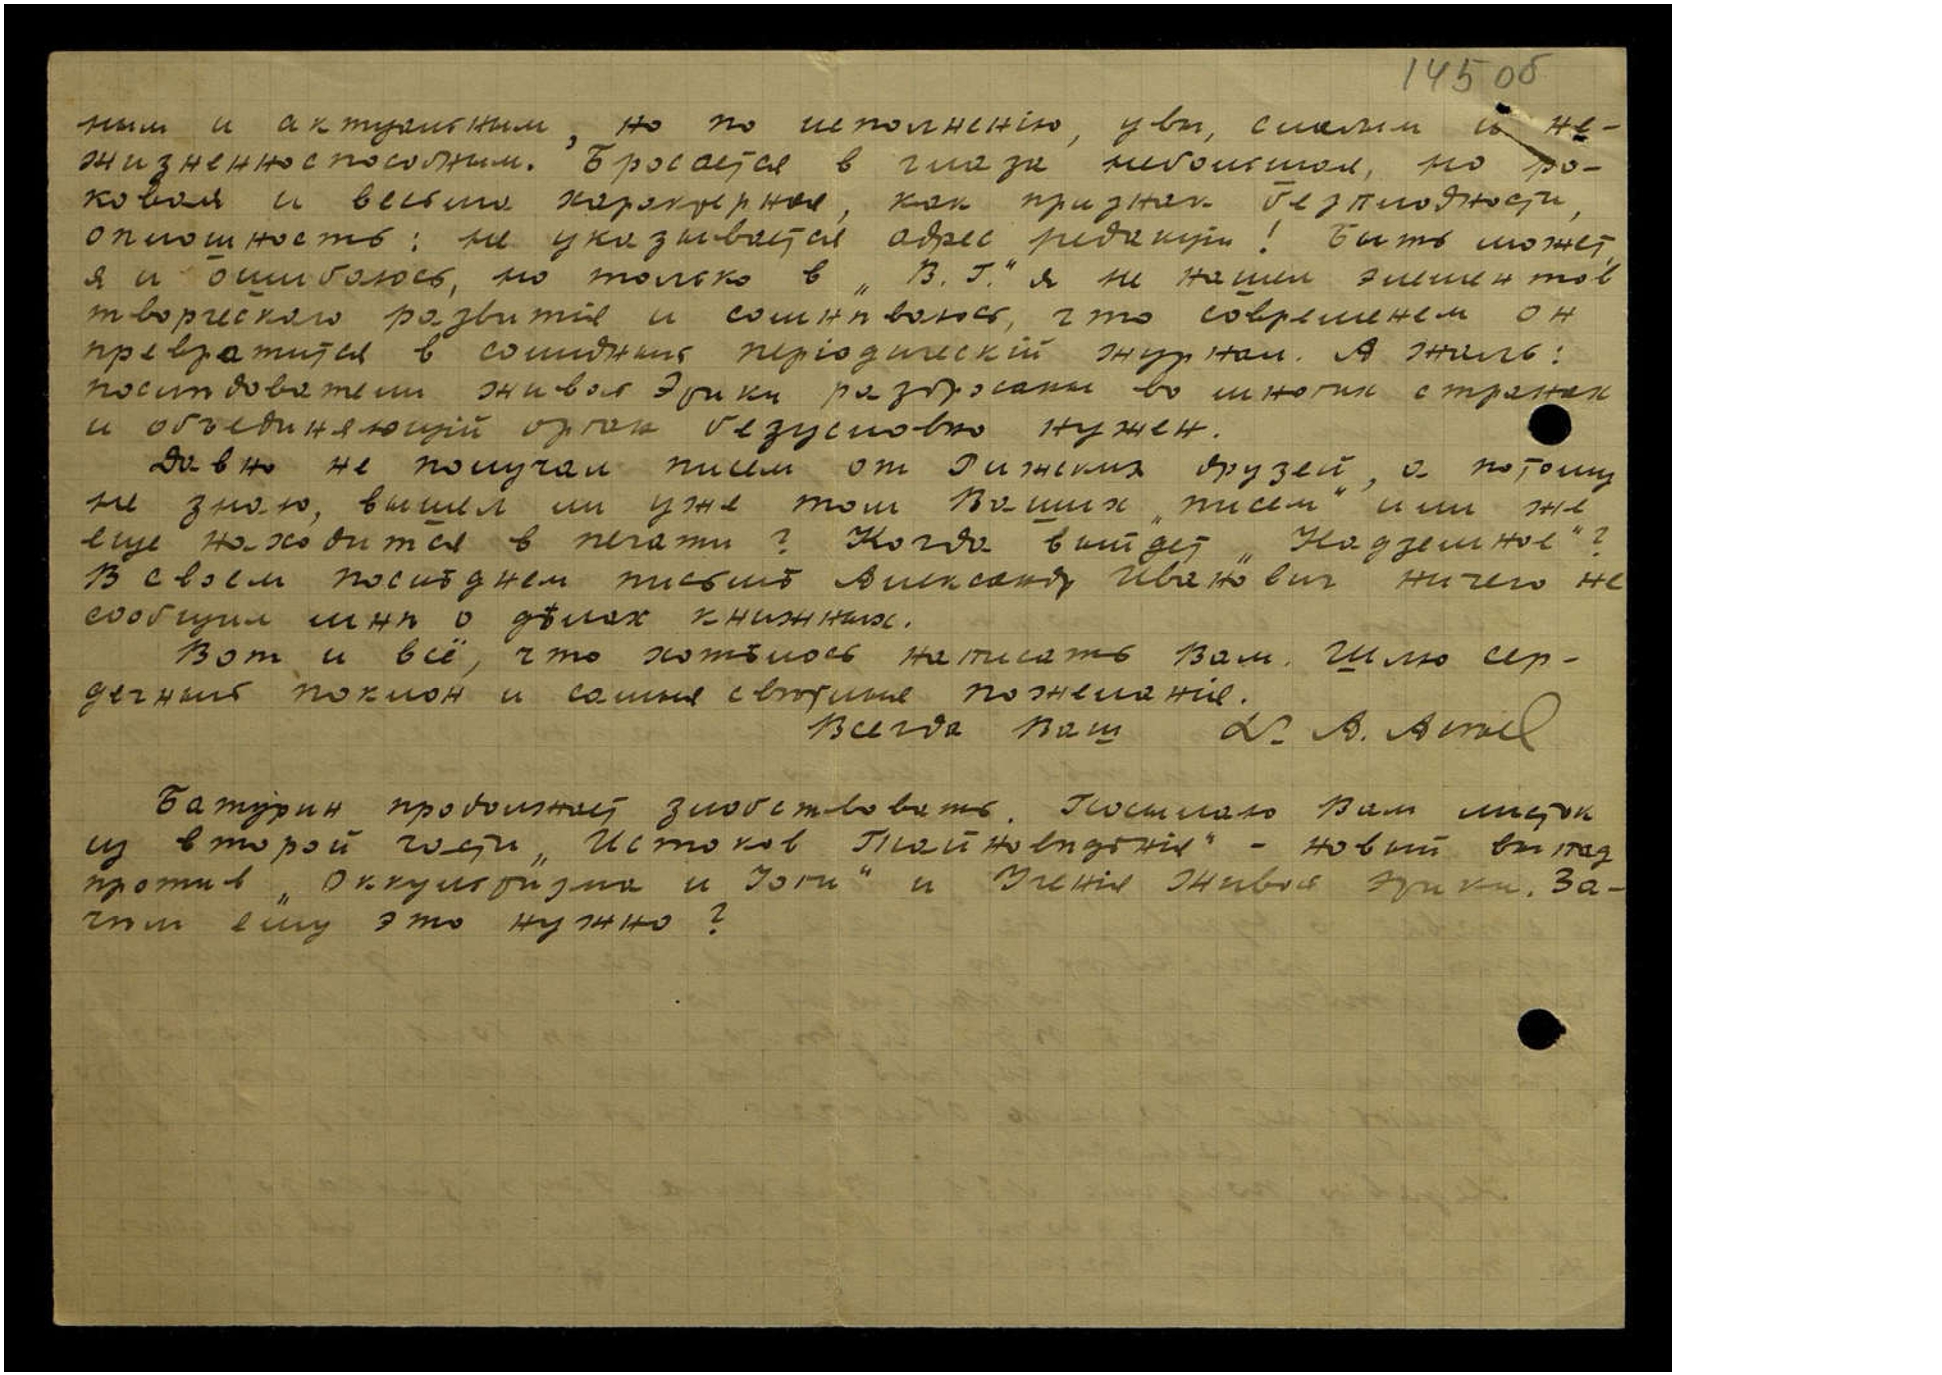 145 об
ным и актуальным, но по исполненію, увы, слабым и не-
жизненноспособным. Бросается в глаза небольшая, но ро-
ковая и весьма характерная, как признак безплодности,
оплошность: не указывается адрес редакціи! Быть может,
я и ошибаюсь, но только в „В. Г.“ я не нашел элементов
творческаго развитія и сомнѣваюсь, что современем он
превратится в солидный періодическій журнал. А жаль:
послѣдователи живой Этики разбросаны во многих странах
и объединяющій орган безусловно нужен.
Давно не получал писем от Рижских друзей, а потому
не знаю, вышел ли уже том Ваших „писем“ или же
еще находится в печати? Когда выйдет „Надземное“?
В своем послѣднем письмѣ Александр Иванович ничего не
сообщил мнѣ о дѣлах книжных.
Вот и всё, что хотѣлось написать Вам. Шлю сер-
дечный поклон и самыя свѣтлыя пожеланія.
Всегда Ваш Dr. А. Асеев
Батурин продолжает злобствовать. Посылаю Вам листок
из второй части „Истоков Тайновидѣнія“ - новый выпад
против „Оккультизма и Іоги“ и Ученія Живой Этики. За-
чѣм ему это нужно?